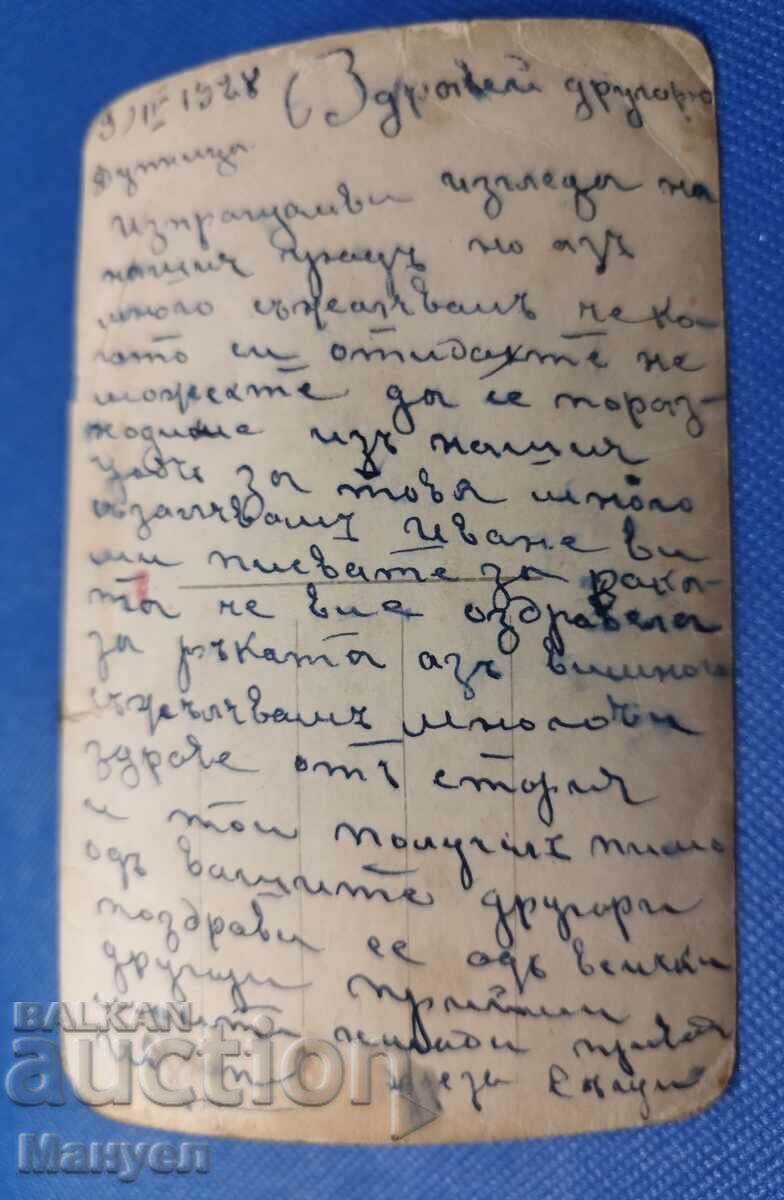 9/IV 1928 Здравей другарю
Дупница
Изпращамви изгледа на
нашия градъ но азъ
много съжелявамъ че ко-
гато си отидохте не
можехте да се пораз-
ходиме изъ нашия
за това много
Иване ви
ми писвате за рака-
та че ви е оздравела
за ръката азъ ви много
съжелявамъ многочи
здраве отъ стория
и той получилъ писмо
одъ вашите другари
поздрави се одъ всички
други приими
BALKAN
auction
Мануел